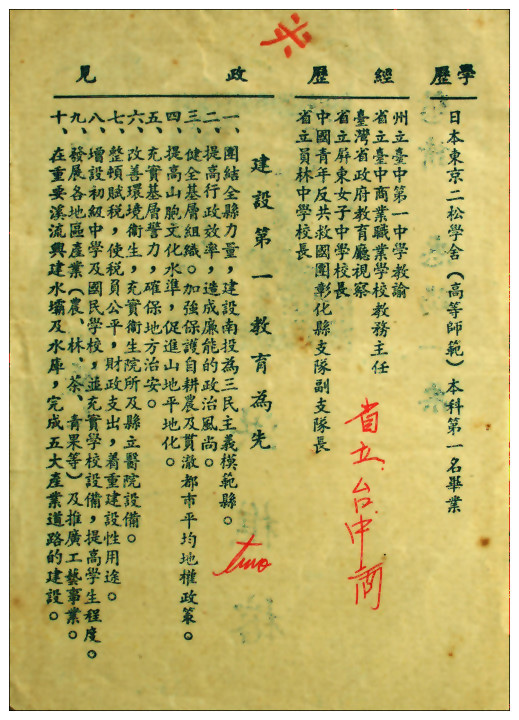 学歷
日本東京二松學舍(高等師範)本科第一名畢業
經歷
州立臺中第一中學教諭
省立臺中商業職業學校教務主任
臺灣省政府教育廳視察
省立屏東女子中學校長
中國青年反共救國團彰化縣支隊副支隊長
省立員林中學校長
政見
建設第一教育為先
一、團結全縣力量,建設南投為三民主義模範縣。
二、提高行政效率,造成廉能的政治風尚。
三、健全基層組織。加強保護自耕農及貫澈都市平均地權政策。
四、提高山胞文化水準,促進山地平地化。
五、充實基層警力,確保地方治安。
六、改善環境衛生,充實衛生院所及縣立醫院設備。
七、整頓賦稅,使稅負公平,財政支出,着重建設性用途。
八、增設初級中學及國民學校,並充實學校設備,提高學生程度。
九、發展各地區產業(農、林、茶、青果等)及推廣工藝事業。
十、在重要溪流興建水壩及水庫,完成五大產業道路的建設。
省立台中商
two